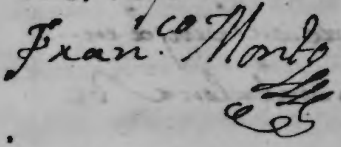 Fran.co Monto